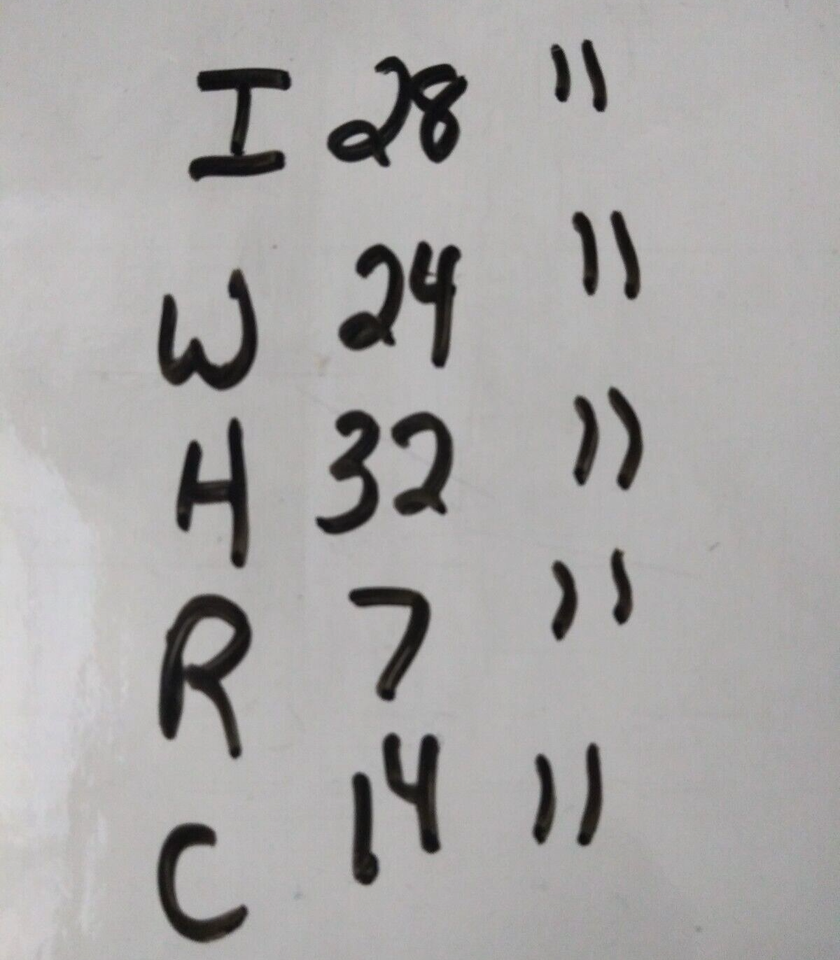 I 28 "
W 24 "
H 32 "
R 7 "
C 14 "